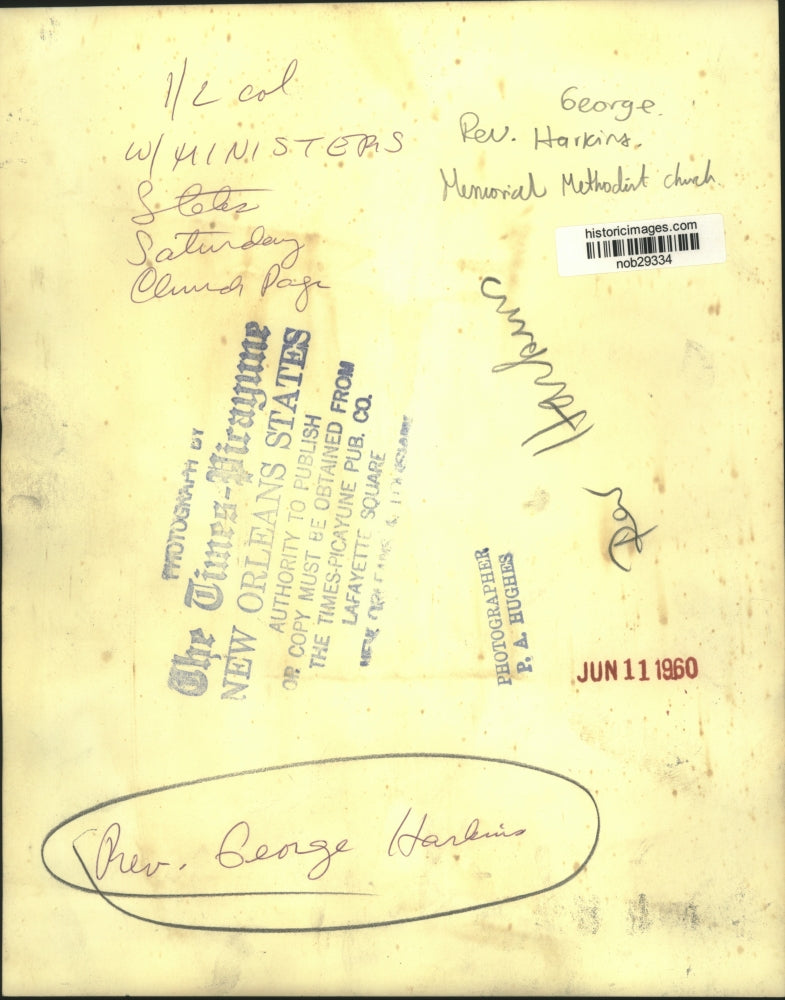 1/2 col
W/ MINISTERS
States
Saturday
Church Page
George.
Rev. Harkins.
Memorial Methodist church
historicimages.com
nob29334
Harkins
Rev
PHOTOGRAPH BY
The Times-Picayune
NEW ORLEANS STATES
AUTHORITY TO PUBLISH
OR COPY MUST BE OBTAINED FROM
THE TIMES-PICAYUNE PUB. CO.
LAFAYETTE SQUARE
NEW ORLEANS
PHOTOGRAPHER
P. A. HUGHES
JUN 11 1960
Rev. George Harkins